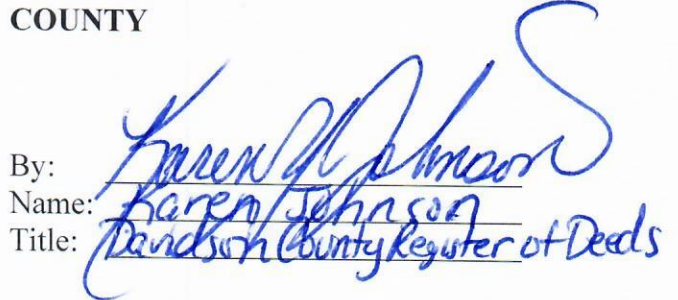 COUNTY
By: Karen Y Johnson
Name: Karen Johnson
Title: Davidson County Register of Deeds